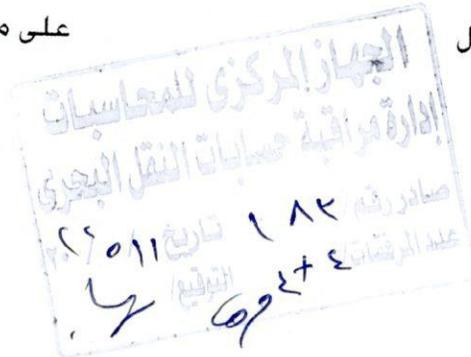 على
الجهاز المركزى للمحاسبات
إدارة مراقبة حسابات النقل البحرى
صادر رقم / ١٨٢ تاريخ
عدد المرفقات / ٤+٤ التوقيع /